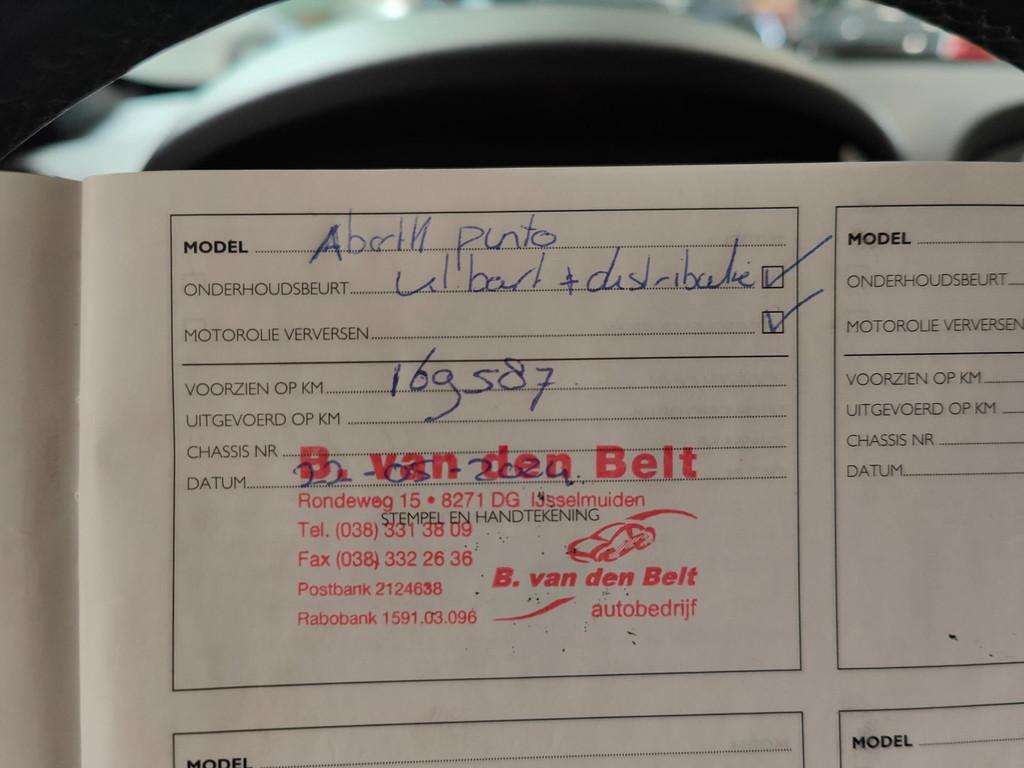 MODEL Abarth punto
ONDERHOUDSBEURT + distributie
MOTOROLIE VERVERSEN
VOORZIEN OP KM 169587
UITGEVOERD OP KM
CHASSIS NR
DATUM 22-05-2024
B. van den Belt
Rondeweg 15 • 8271 DG IJsselmuiden
STEMPEL EN HANDTEKENING
Tel. (038) 331 38 09
Fax (038) 332 26 36
Postbank 2124638
Rabobank 1591.03.096
B. van den Belt
autobedrijf
MODEL
ONDERHOUDSBEURT
MOTOROLIE VERVERSEN
VOORZIEN OP KM
UITGEVOERD OP KM
CHASSIS NR
DATUM
MODEL
MODEL